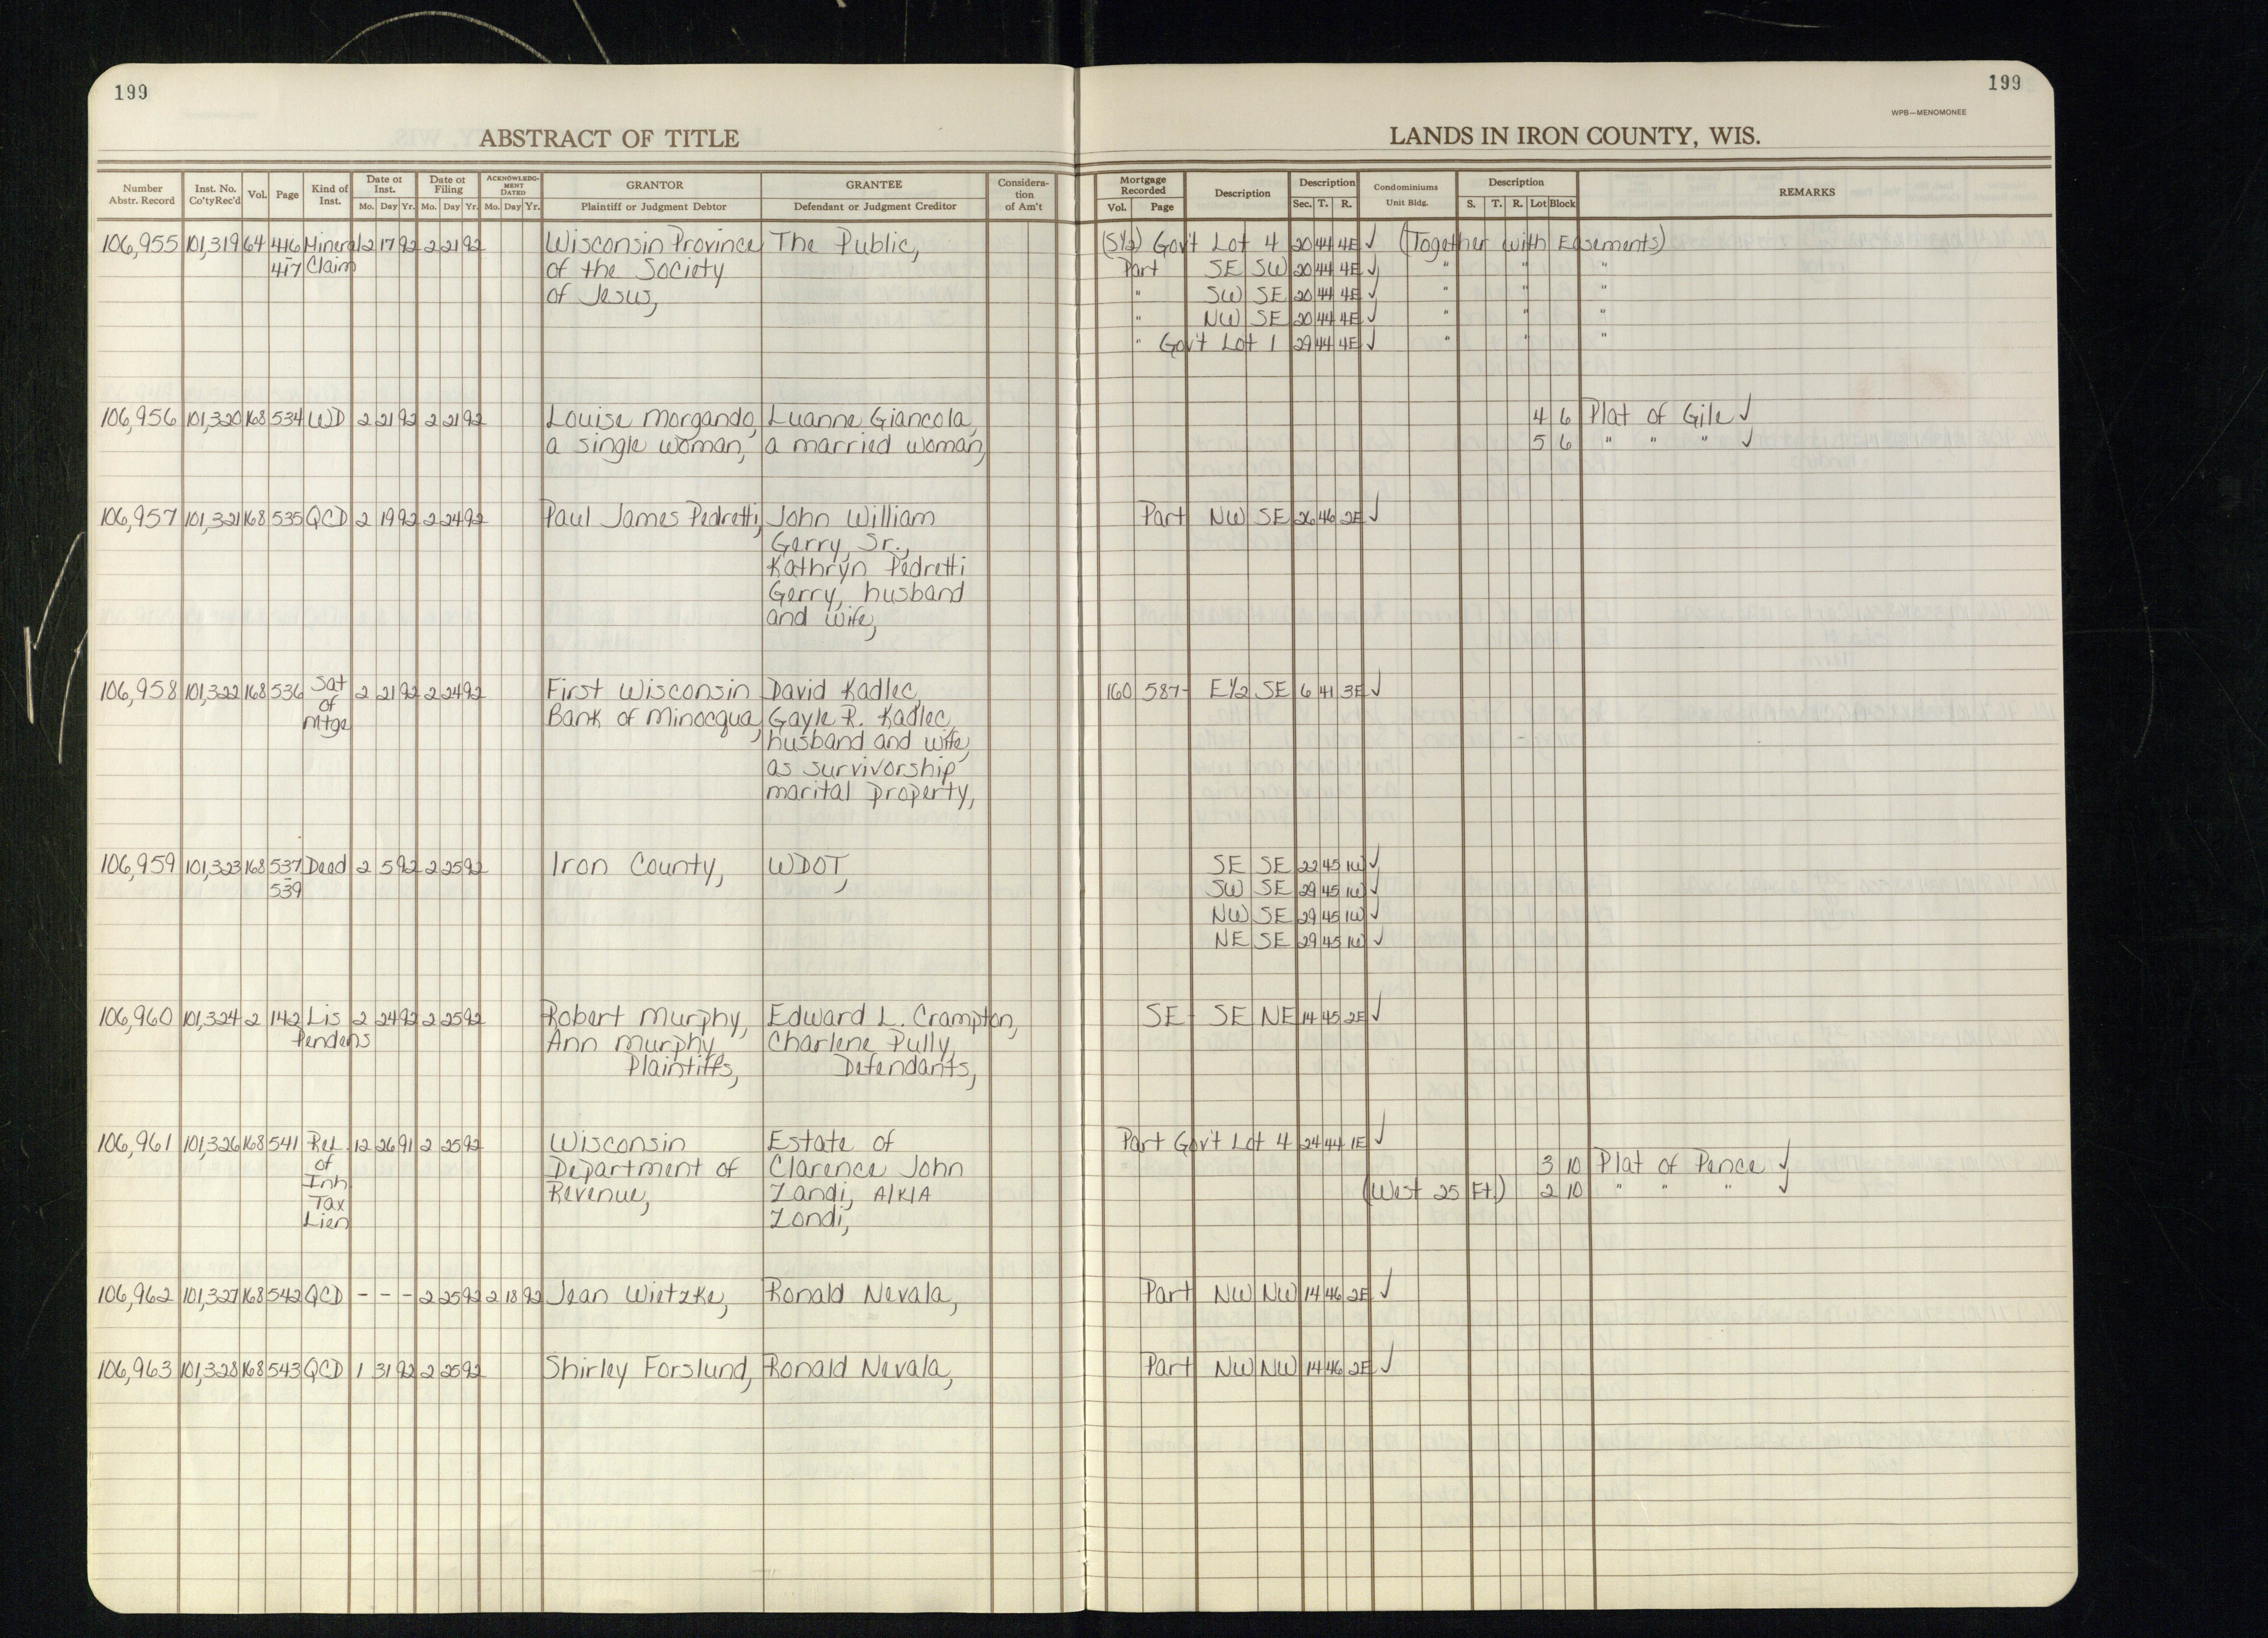 199
199
WPB—MENOMONEE
ABSTRACT OF TITLE
LANDS IN IRON COUNTY, WIS.
Number Abstr. Record | Inst. No. Co'tyRec'd | Vol. | Page | Kind of Inst. | Date of Inst. Mo. Day Yr. | Date of Filing Mo. Day Yr. | ACKNOWLEDGMENT DATED Mo. Day Yr. | GRANTOR Plaintiff or Judgment Debtor | GRANTEE Defendant or Judgment Creditor | Consideration of Am't | Mortgage Recorded Vol. Page | Description | Description Sec. T. R. | Condominiums Unit Bldg. | Description S. T. R. Lot Block | REMARKS
106,955 101,319 64 416 Mineral 2 17 92 2 21 92 Wisconsin Province The Public, (S½) Gov't Lot 4 20 44 4E ✓ (Together with Easements)
417 Claim of the Society Part SE SW 20 44 4E ✓ " " "
of Jesus, " SW SE 20 44 4E ✓ " " "
" NW SE 20 44 4E ✓ " " "
" Gov't Lot 1 29 44 4E ✓ " " "
106,956 101,320 168 534 WD 2 21 92 2 21 92 Louise Morgando, Luanne Giancola, 4 6 Plat of Gile ✓
a single woman, a married woman, 5 6 " " " ✓
106,957 101,321 168 535 QCD 2 19 92 2 24 92 Paul James Pedretti, John William Part NW SE 26 46 2E ✓
Gerry, Sr.,
Kathryn Pedretti
Gerry, husband
and wife,
106,958 101,322 168 536 Sat 2 21 92 2 24 92 First Wisconsin David Kadlec, 160 587- E½ SE 6 41 3E ✓
of Mtge Bank of Minocqua, Gayle R. Kadlec,
husband and wife,
as survivorship
marital property,
106,959 101,323 168 537 Deed 2 5 92 2 25 92 Iron County, WDOT, SE SE 22 45 1W ✓
539 SW SE 29 45 1W ✓
NW SE 29 45 1W ✓
NE SE 29 45 1W ✓
106,960 101,324 2 142 Lis 2 24 92 2 25 92 Robert Murphy, Edward L. Crampton, SE SE NE 14 45 2E ✓
Pendens Ann Murphy Charlene Pully,
Plaintiffs, Defendants,
106,961 101,326 168 541 Rel 12 26 91 2 25 92 Wisconsin Estate of Part Gov't Lot 4 24 44 1E ✓
of Department of Clarence John 3 10 Plat of Pence ✓
Inh Revenue, Zandi, A/K/A (West 25 Ft.) 2 10 " " " ✓
Tax Zondi,
Lien
106,962 101,327 168 542 QCD - - - 2 25 92 2 18 92 Jean Wietzke, Ronald Nevala, Part NW NW 14 46 2E ✓
106,963 101,328 168 543 QCD 1 31 92 2 25 92 Shirley Forslund, Ronald Nevala, Part NW NW 14 46 2E ✓